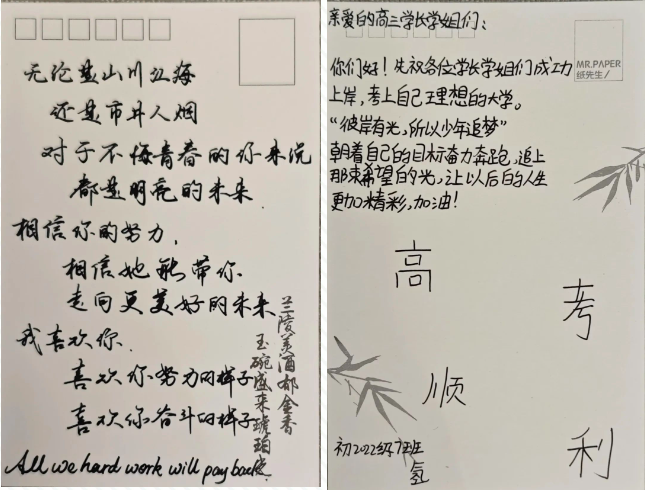 无论是山川江海
还是市井人烟
对于不悔青春的你来说
都是明亮的未来
相信你的努力,
相信她能带你
走向更美好的未来
我喜欢你
喜欢你努力的样子
喜欢你奋斗的样子
兰陵美酒郁金香
玉碗盛来琥珀光
All we hard work will pay back
亲爱的高三学长学姐们:
你们好!先祝各位学长学姐们成功
上岸,考上自己理想的大学。
“彼岸有光,所以少年追梦”
朝着自己的目标奋力奔跑,追上
那束希望的光,让以后的人生
更加精彩,加油!
MR.PAPER
纸先生/
高
考
顺
利
初2022级7班
氢